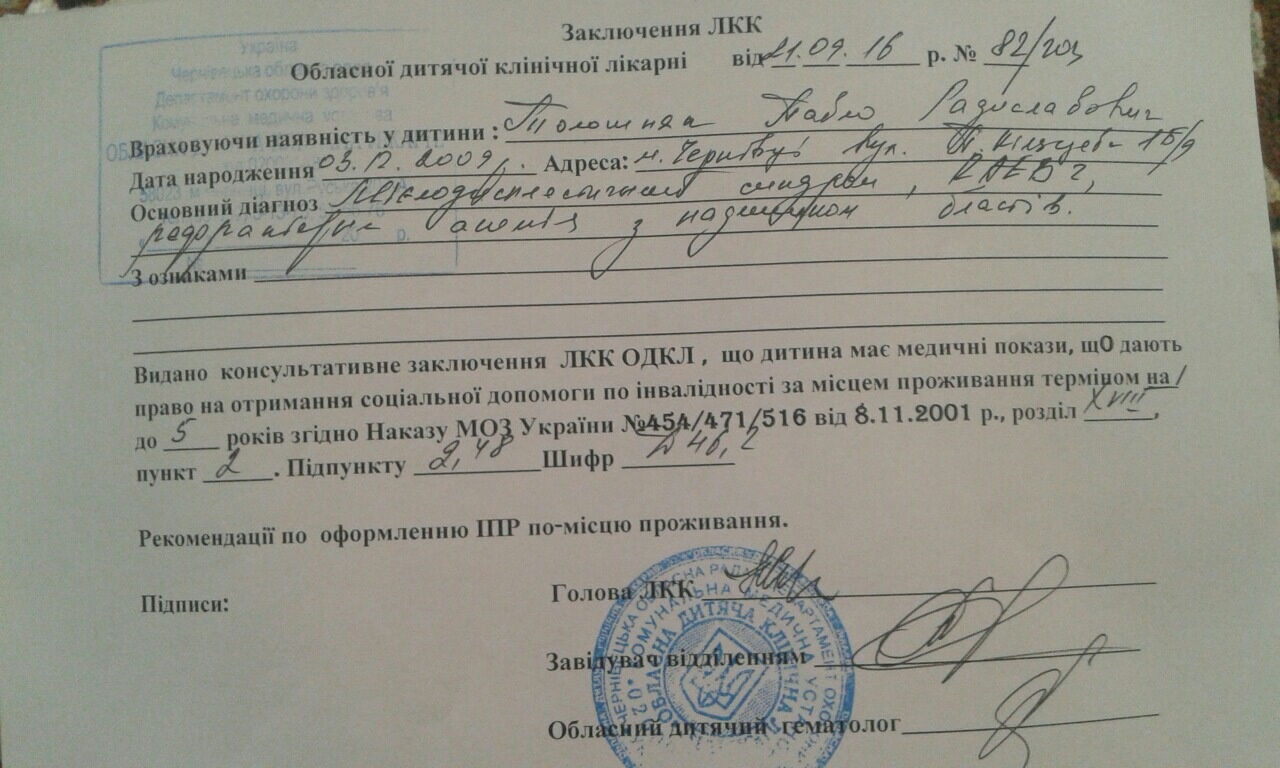 Заключення ЛКК
Обласної дитячої клінічної лікарні від 21.09.16 р. № 82/
Україна
Департамент охорони здоров'я
Враховуючи наявність у дитини : Павло Радиславович
Дата народження 03.12.2009р. Адреса: м. Чернівці вул.
Основний діагноз Мієлодиспластичний синдром,
рефрактерна анемія з надлишком бластів.
З ознаками
Видано консультативне заключення ЛКК ОДКЛ , що дитина має медичні покази, щО дають
право на отримання соціальної допомоги по інвалідності за місцем проживання терміном на /
до 5 років згідно Наказу МОЗ України №454/471/516 від 8.11.2001 р., розділ XVIII,
пункт 2. Підпункту 2,48 Шифр D46,2
Рекомендації по оформленню ІПР по-місцю проживання.
Підписи:
Голова ЛКК
Завідувач відділенням
Обласний дитячий гематолог
ЧЕРНІВЕЦЬКА ОБЛАСНА РАДА ДЕПАРТАМЕНТ
КОМУНАЛЬНА МЕДИЧНА УСТАНОВА
ОБЛАСНА ДИТЯЧА КЛІНІЧНА